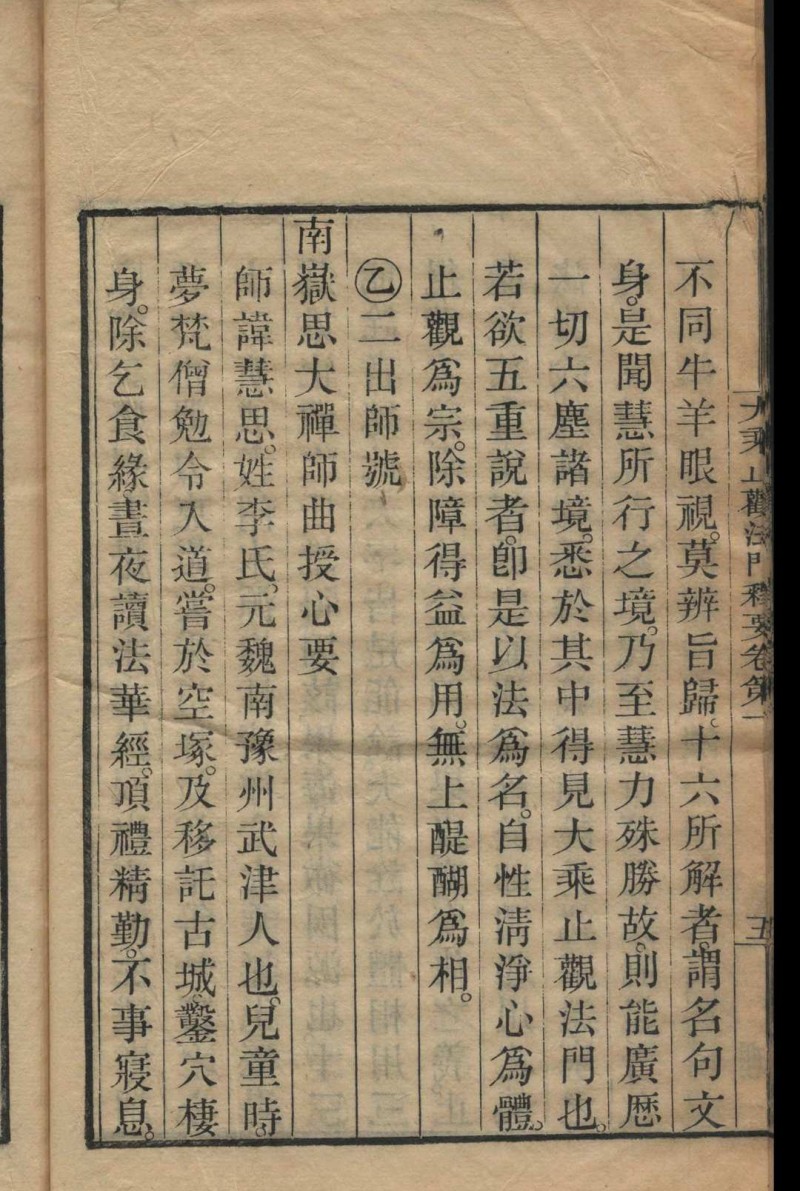 大乘止觀法門釋要卷第一
三
不同牛羊眼視。莫辨旨歸。十六所解者。謂名句文
身。是聞慧所行之境。乃至慧力殊勝故。則能廣歷
一切六塵諸境。悉於其中得見大乘止觀法門也。
若欲五重說者。卽是以法爲名。自性淸淨心爲體。
止觀爲宗。除障得益爲用。無上醍醐爲相。
㊁二出師號
南嶽思大禪師曲授心要
師諱慧思。姓李氏。元魏南豫州武津人也。兒童時。
夢梵僧勉令入道。嘗於空塚。及移託古城。鑿穴棲
身。除乞食緣。晝夜讀法華經。頂禮精勤。不事寢息。